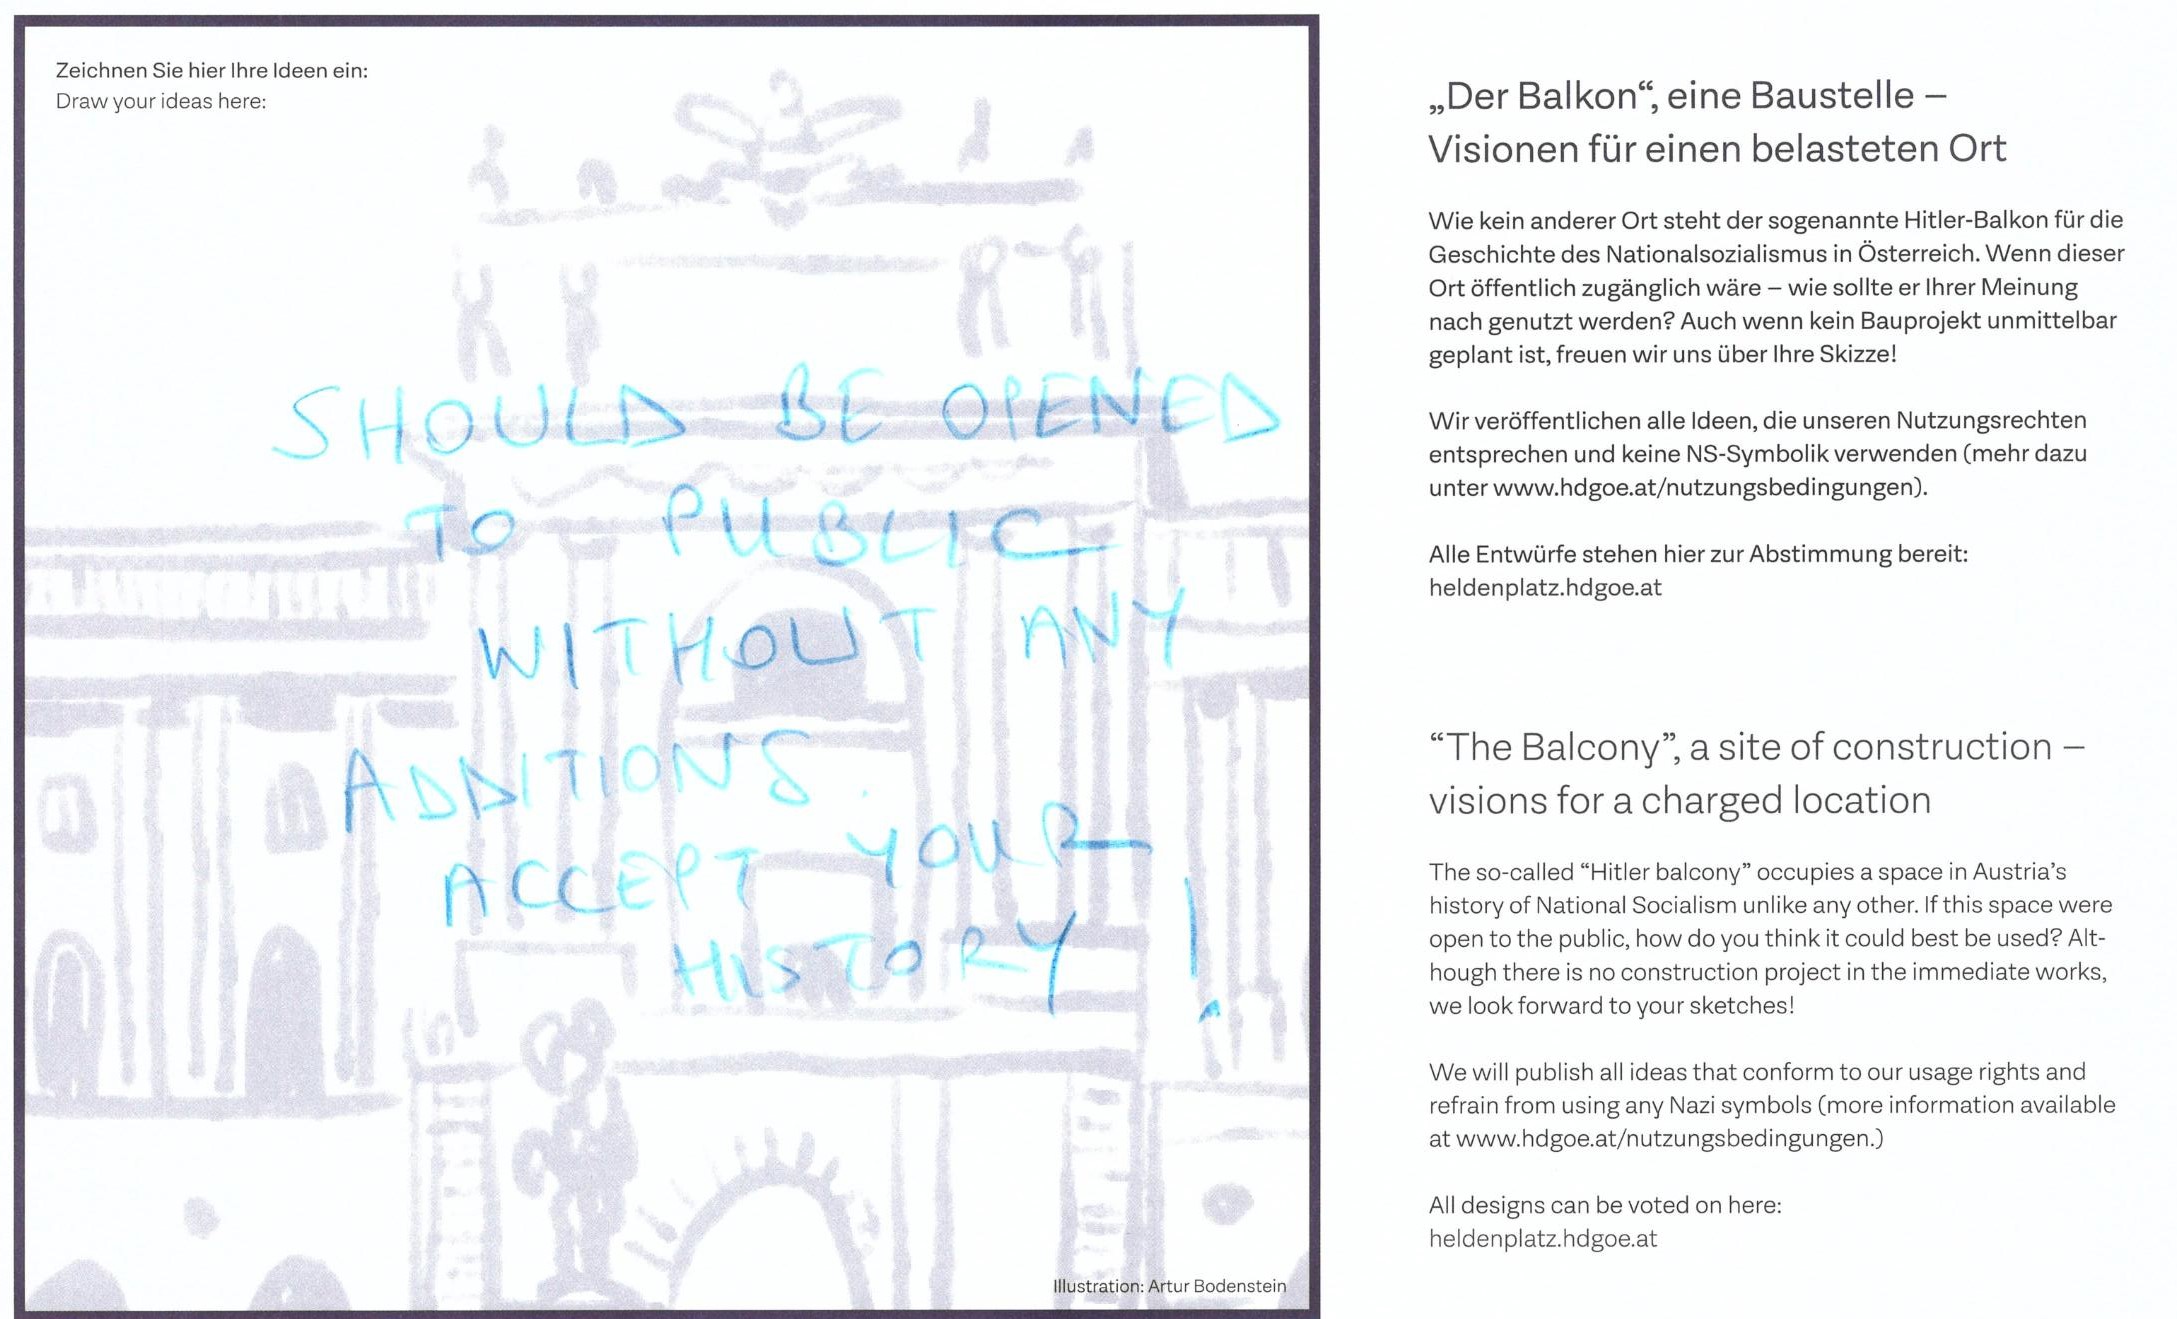 Zeichnen Sie hier Ihre Ideen ein:
Draw your ideas here:
SHOULD BE OPENED
TO PUBLIC
WITHOUT ANY
ADDITIONS.
ACCEPT YOUR
HISTORY!
Illustration: Artur Bodenstein
„Der Balkon“, eine Baustelle –
Visionen für einen belasteten Ort
Wie kein anderer Ort steht der sogenannte Hitler-Balkon für die
Geschichte des Nationalsozialismus in Österreich. Wenn dieser
Ort öffentlich zugänglich wäre – wie sollte er Ihrer Meinung
nach genutzt werden? Auch wenn kein Bauprojekt unmittelbar
geplant ist, freuen wir uns über Ihre Skizze!
Wir veröffentlichen alle Ideen, die unseren Nutzungsrechten
entsprechen und keine NS-Symbolik verwenden (mehr dazu
unter www.hdgoe.at/nutzungsbedingungen).
Alle Entwürfe stehen hier zur Abstimmung bereit:
heldenplatz.hdgoe.at
“The Balcony”, a site of construction –
visions for a charged location
The so-called “Hitler balcony” occupies a space in Austria’s
history of National Socialism unlike any other. If this space were
open to the public, how do you think it could best be used? Alt-
hough there is no construction project in the immediate works,
we look forward to your sketches!
We will publish all ideas that conform to our usage rights and
refrain from using any Nazi symbols (more information available
at www.hdgoe.at/nutzungsbedingungen.)
All designs can be voted on here:
heldenplatz.hdgoe.at